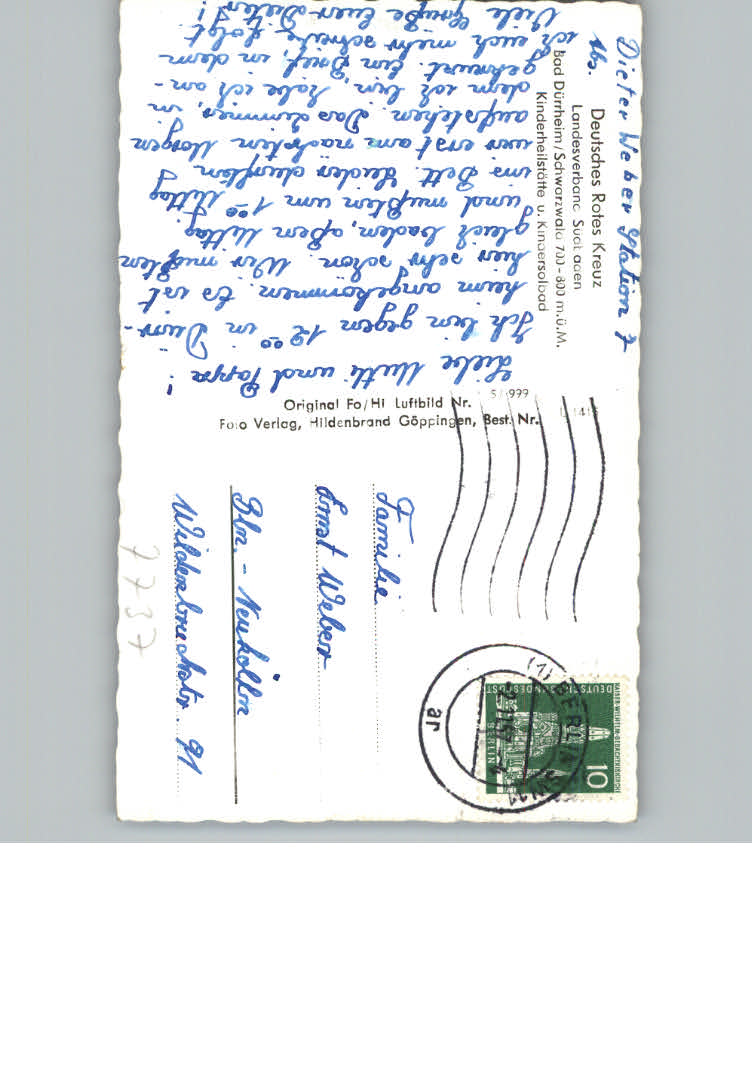 Dieter Weber Station 7
Abs.
Deutsches Rotes Kreuz
Landesverband Südbaden
Bad Dürrheim/Schwarzwald 700-800 m.ü.M.
Kinderheilstätte u. Kindersolbad
Liebe Mutti und Pappa!
Ich bin gegen 12⁰⁰ in Dürr-
heim angekommen. Es ist
hier sehr schön. Wir mußten
gleich baden, aßen Mittag
und mußten um 1⁰⁰ Mittag
ins Bett. Leider durften
wir erst am nächsten Morgen
aufstehen. Das Zimmer, in
dem ich bin, habe ich an-
gekreuzt. Ein Brief, in dem
ich euch mehr schreibe folgt
Viele Grüße Euer Dieter!
Original Fo/Hi Luftbild Nr. 5/999
Foto Verlag, Hildenbrand Göppingen, Best. Nr. L 1415
Familie
Ernst Weber
Bln. - Neukölln
Wildenbruchstr. 91
7737
(1) BERLIN SW 11
ar
KAISER-WILHELM-GEDÄCHTNISKIRCHE
DEUTSCHE BUNDESPOST
BERLIN
10